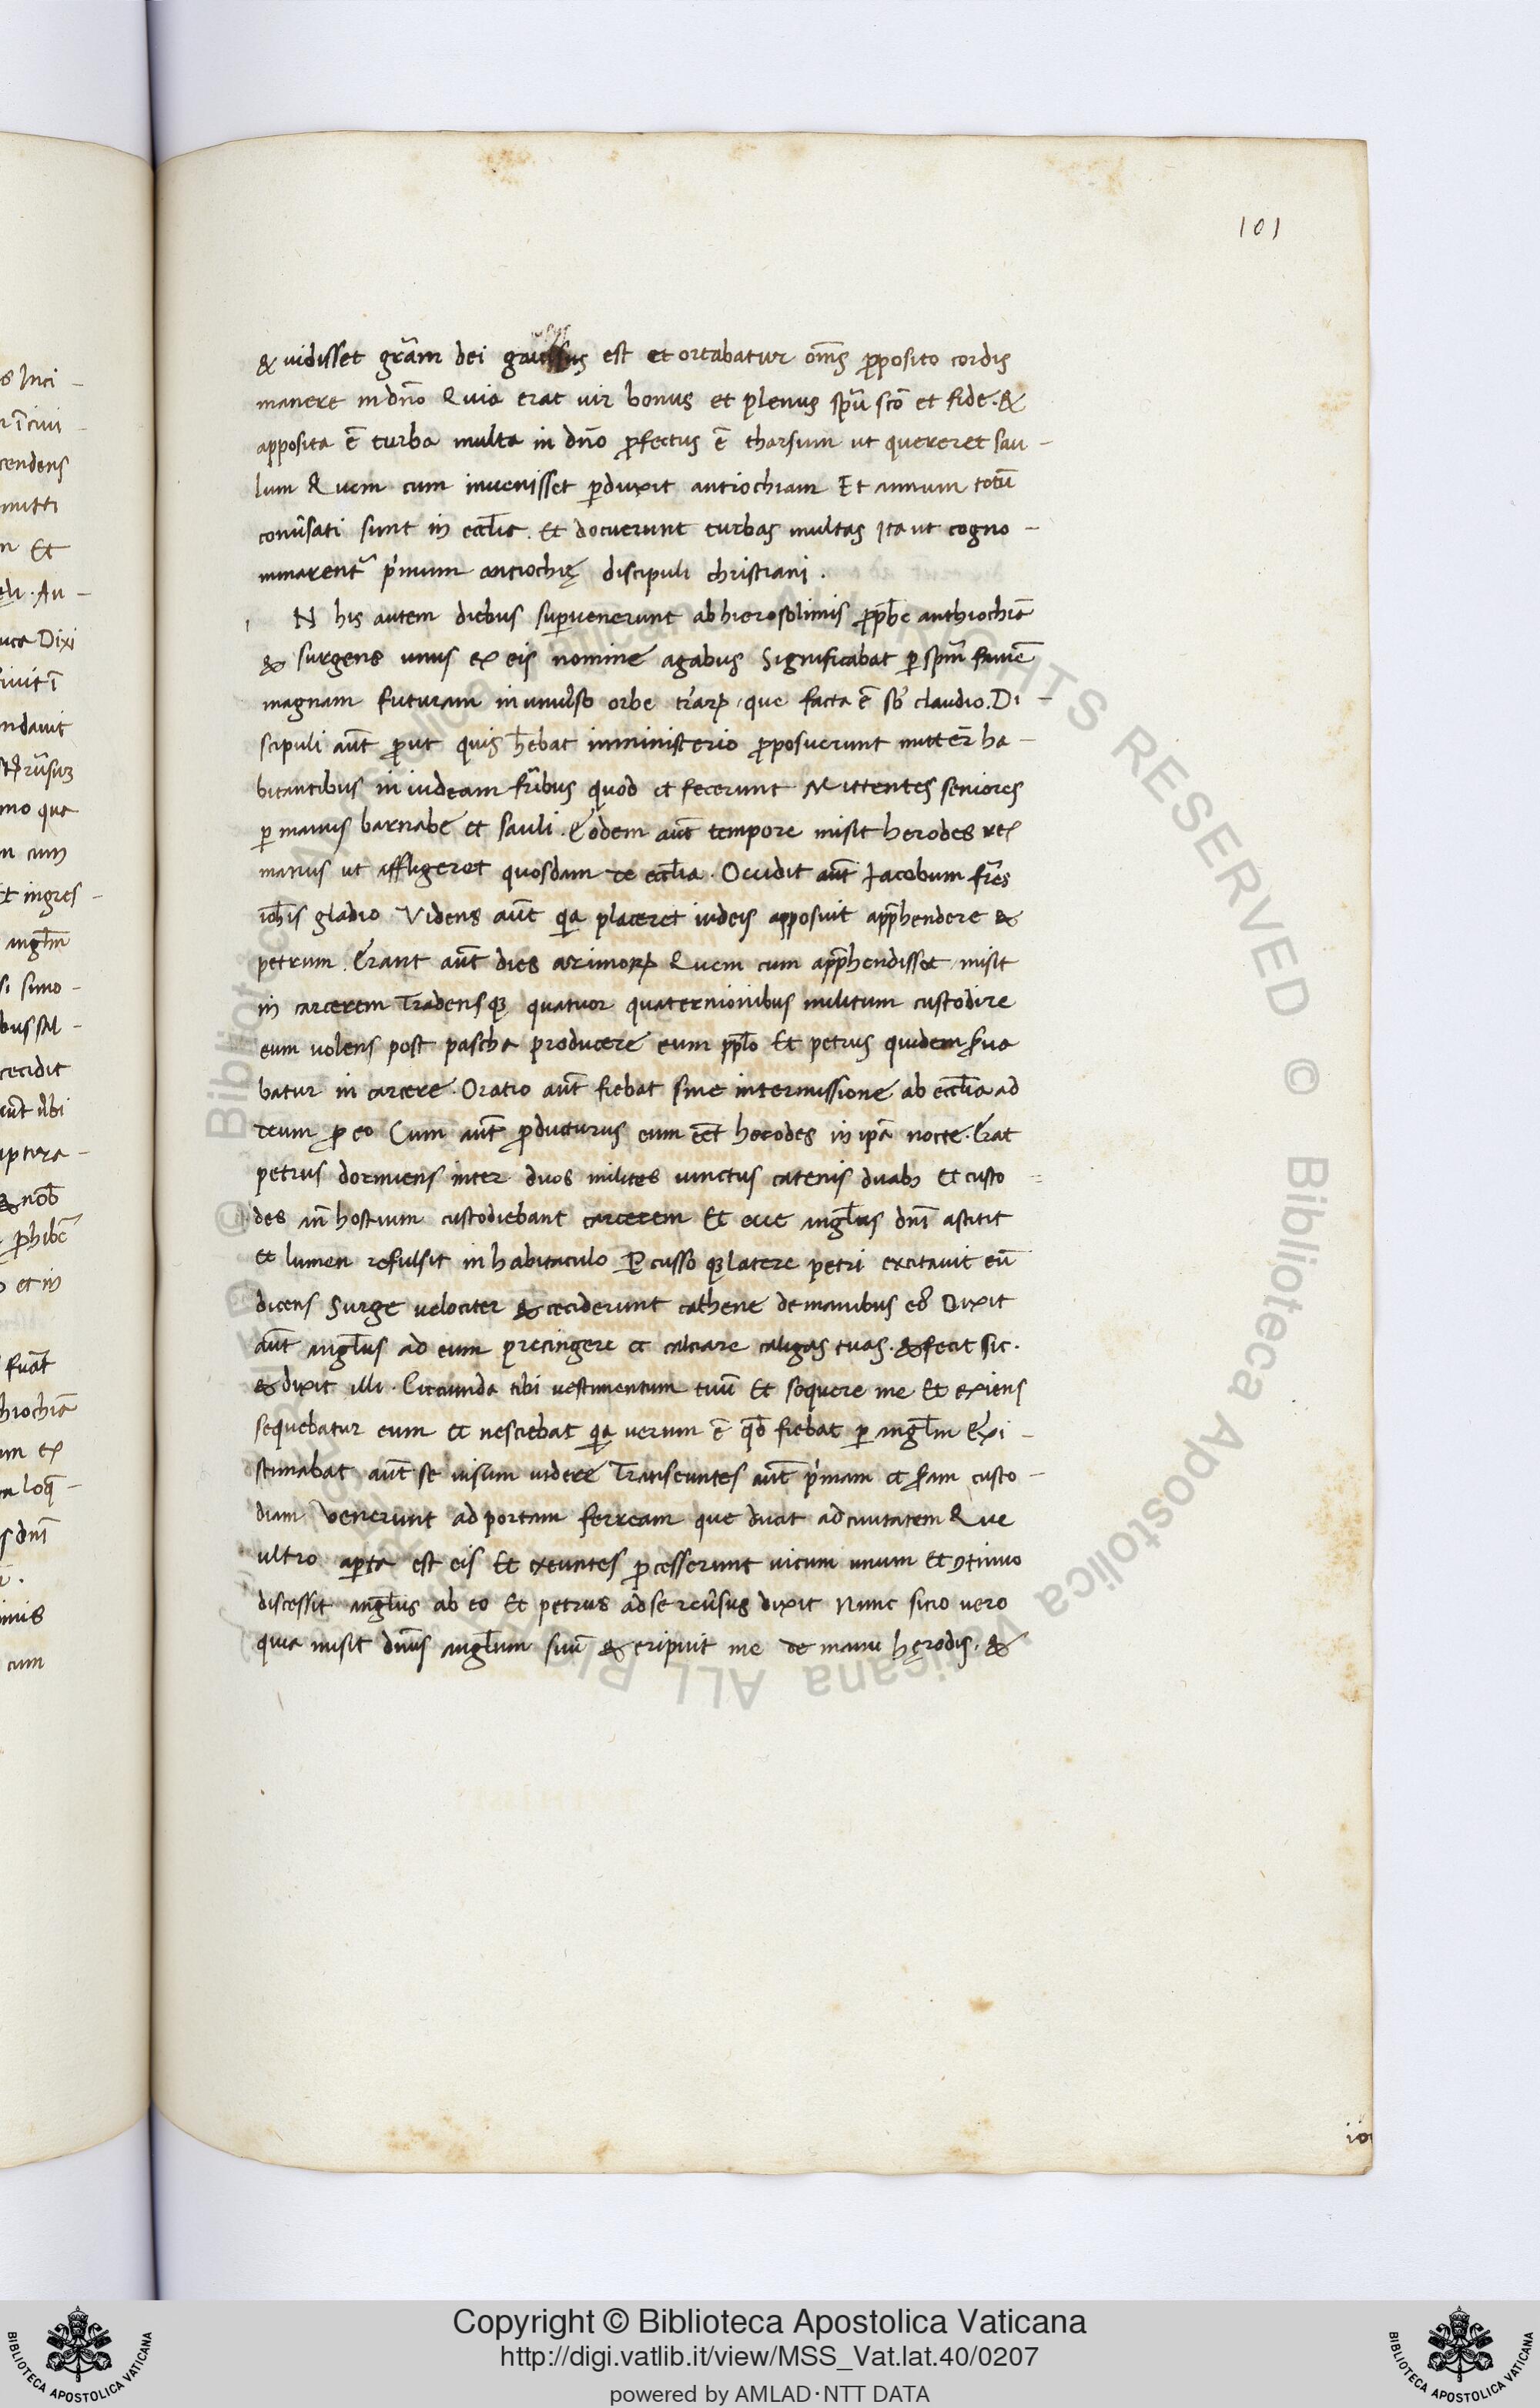 101
& vidisset grãm dei gauissus est et ortabatur om̃s p̱posito cordis
manere in dño Quia erat vir bonus et plenus sp̃u sc̃o et fide. &
apposita ẽ turba multa in dño p̱fectus ẽ tharsum ut quereret sau -
lum Quem cum invenisset p̱duxit antiochiam Et annum totũ
conu̾sati sunt in eccl̃ia. Et docuerunt turbas multas Ita ut cogno -
minarent̃ p̾mum antiochię discipuli christiani.
N his autem diebus sup̱uenerunt ab hierosolimis p̱ph̃e anthiochiã
& surgens unus ex eis nomine agabus Significabat p̱ sp̃m famẽ
magnam futuram in uniu̾so orbe tr̃arꝝ que facta ẽ sb̾ claudio. Di -
scipuli aũt p̱ut quis h̃ebat in ministerio p̱posuerunt mitter̃ ha -
bitantibus in iudeam fr̃ibus quod et fecerunt Mittentes seniores
p̱ manus barnabe et sauli. Eodem aũt tempore misit herodes rex
manus ut affligeret quosdam de eccl̃ia. Occidit aũt Jacobum fr̃es
ioh̃is gladio Videns aũt qa placeret iudeis apposuit app̃hendere &
petrum. Erant aũt dies azimorꝝ Quem cum app̃hendisset misit
in carcerem Tradensqꝫ quatuor quaternionibus militum custodire
eum volens post pascha producere eum pp̃lo Et petrus quidem s̾ua
batur in carcere. Oratio aũt fiebat sine intermissione ab eccl̃ia ad
deum p̱ eo Cum aũt p̱ducturus eum eẽt herodes in ip̃a nocte. Erat
petrus dormiens inter duos milites uinctus catenis duabꝫ et custo
des añ hostium custodiebant carcerem Et ecce angl̃us dñi astitit
et lumen refulsit in habitaculo P̱cussoqꝫ latere petri excitauit eũ
dicens Surge velociter & ceciderunt cathene de manibus eꝰ Dixit
aũt angl̃us ad eum precingere et calciare caligas tuas. & fecit sic.
& dixit illi. Circunda tibi uestimentum tuũ Et sequere me Et exiens
sequebatur eum et nesciebat qa verum ẽ qd̃ fiebat p̱ angl̃m Exi -
stimabat aũt se uisum uidere Transeuntes aũt p̾mam et s̾am custo -
diam venerunt ad portam ferream que ducit ad ciuitatem Que
ultro ap̱ta est eis Et exeuntes p̱cesserunt uicum unum Et ꝯtinuo
discessit angl̃us ab eo Et petrus ad se reu̾sus dixit Nunc scio uero
quia misit dñus angl̃um suũ & eripuit me de manu hęrodis. &
Copyright © Biblioteca Apostolica Vaticana
http://digi.vatlib.it/view/MSS_Vat.lat.40/0207
powered by AMLAD·NTT DATA